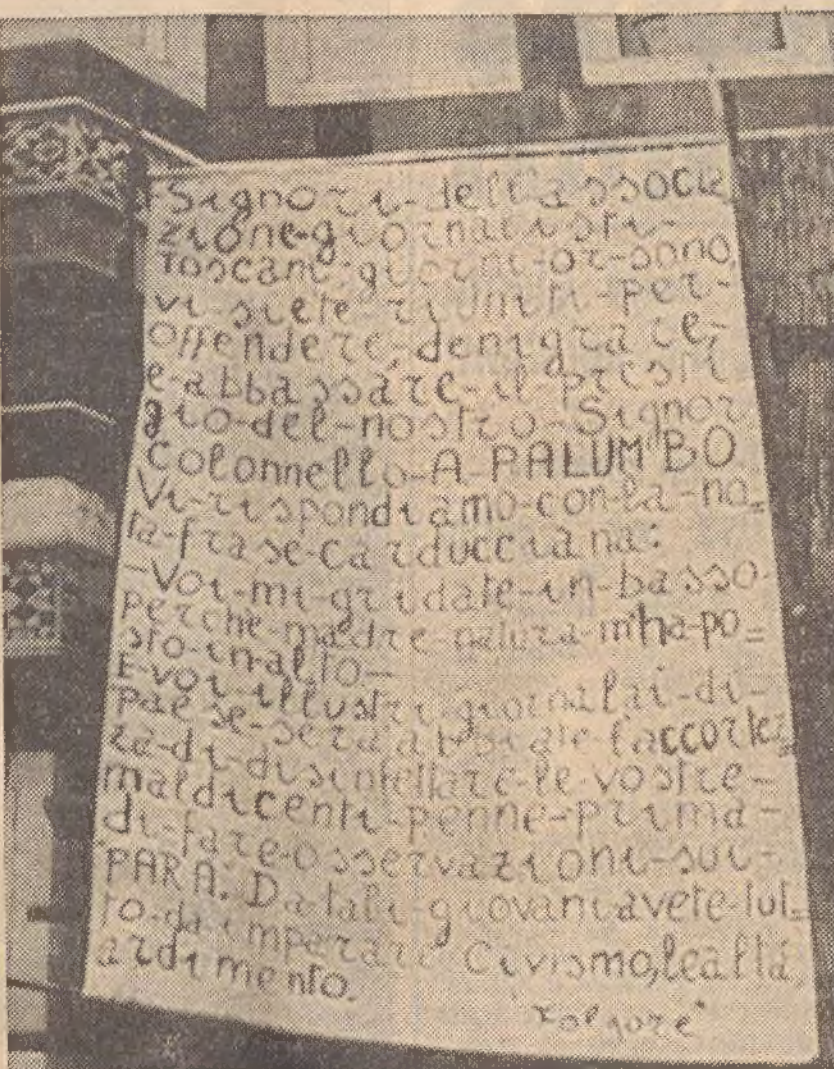 Signori-dell'associa
zione-giornalisti-
Toscani;giorni-or-sono,
vi-siete-riuniti-per-
offendere,denigrare,
e-abbassare-il-presti
gio-del-nostro-Signor
Colonnello-A-PALUMBO
Vi-rispondiamo-con-la-no=
ta-frase-Carducciana:
-Voi-mi-gridate-in-basso-
perchè-madre-natura-m'ha-po=
sto-in-alto-
E-voi-illustri-giornalai-di-
paese-sera-abbiate-l'accortez
za-di-disinfettare-le-vostre-
maldicenti-penne-prima-
di-fare-osservazioni-sui-
PARA. Da-tali-giovani avete-tut=
to-da-imperare Civismo,lealtà,
ardimento.
"Folgore"